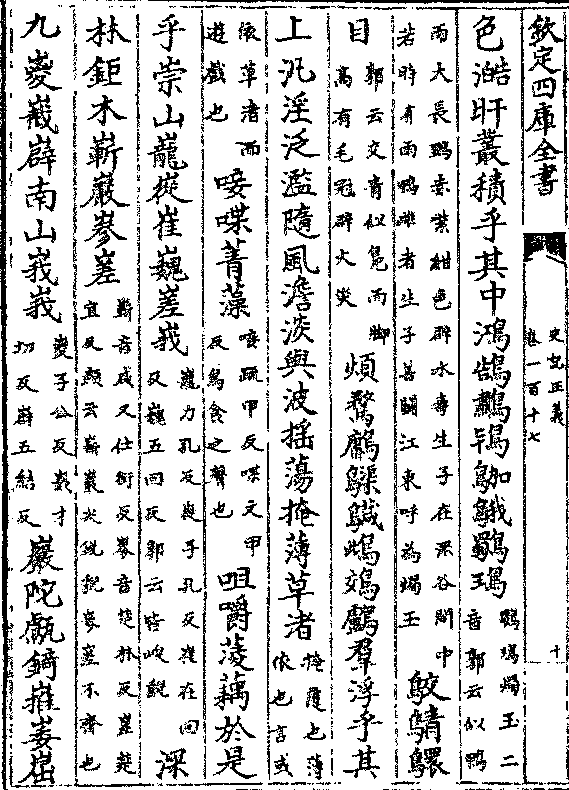 欽定四庫全書
史記正義
卷一百十七
十
色澔旰叢積乎其中鴻鵠鷫鴇鴐鵞鸀鳿
鸀鳿燭玉二
音郭云似鴨
而大長頸赤紫紺色辟水毒生子在深谷澗中
若時有雨鳴雌者生子善鬭江東呼為燭玉
鵁鶄䴉
目
郭云交青似鳧而脚
高有毛冠辟火災
煩鶩鷛𪆂䴋鴜鵁鸕羣浮乎其
上汎淫泛濫隨風澹淡與波搖蕩掩薄草渚
掩覆也薄
依也言或
依草渚而
遊戲也
唼喋菁藻
唼疏甲反喋丈甲
反鳥食之聲也
咀嚼蔆藕於是
乎崇山巃嵸崔巍嵳峩
巃力孔反嵸子孔反崔在回
反巍五回反郭云皆峻貌
深
林鉅木嶄巖參嵳
嶄音咸又仕銜反參音楚林反嵳楚
宜反顏云嶄巖尖銳貌參嵳不齊也
九嵏嶻嶭南山峩峩
嵏子公反嶻才
切反嶭五結反
巖陁甗錡嶊崣崛